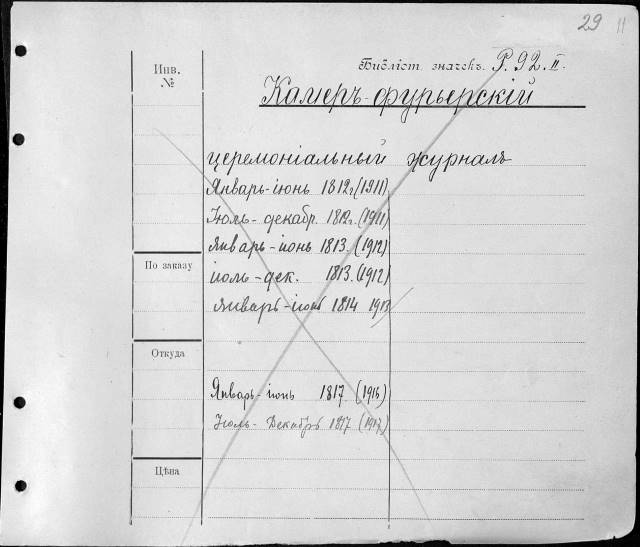 29 11
Библіот. значекъ. Р. 92. II.
Инв.
№
Камеръ-фурьерскій
церемоніальный журналъ
Январь-іюнь 1812г. (1911)
Іюль-декабр. 1812г. (1911)
январь-іюнь 1813. (1912)
По заказу
іюль-дек. 1813. (1912)
январь-іюнь 1814 1913
Откуда
Январь-іюнь 1817. (1916)
Іюль-Декабрь 1817 (1917)
Цѣна